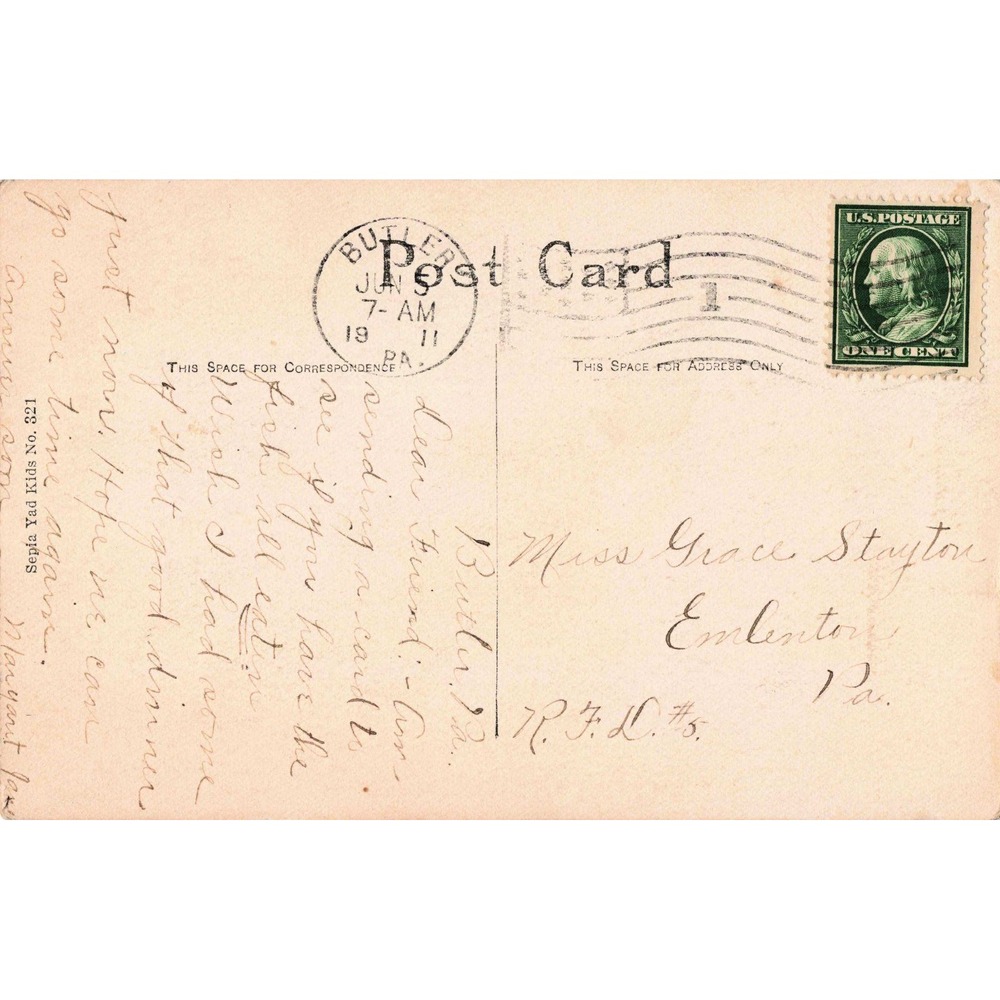 Post Card
BUTLER
JUN 5
7-AM
19 11
PA.
1
U.S. POSTAGE
ONE CENT
THIS SPACE FOR CORRESPONDENCE
THIS SPACE FOR ADDRESS ONLY
Butler, Pa.
Dear Friend:- Am
sending a card to
see if you have the
fish all eaten
Wish I had some
of that good dinner
just now. Hope we can
go some time again.
soon
Miss Grace Stayton
Emlenton
Pa.
R.F.D. #5.
Sepia Yad Kids No. 321